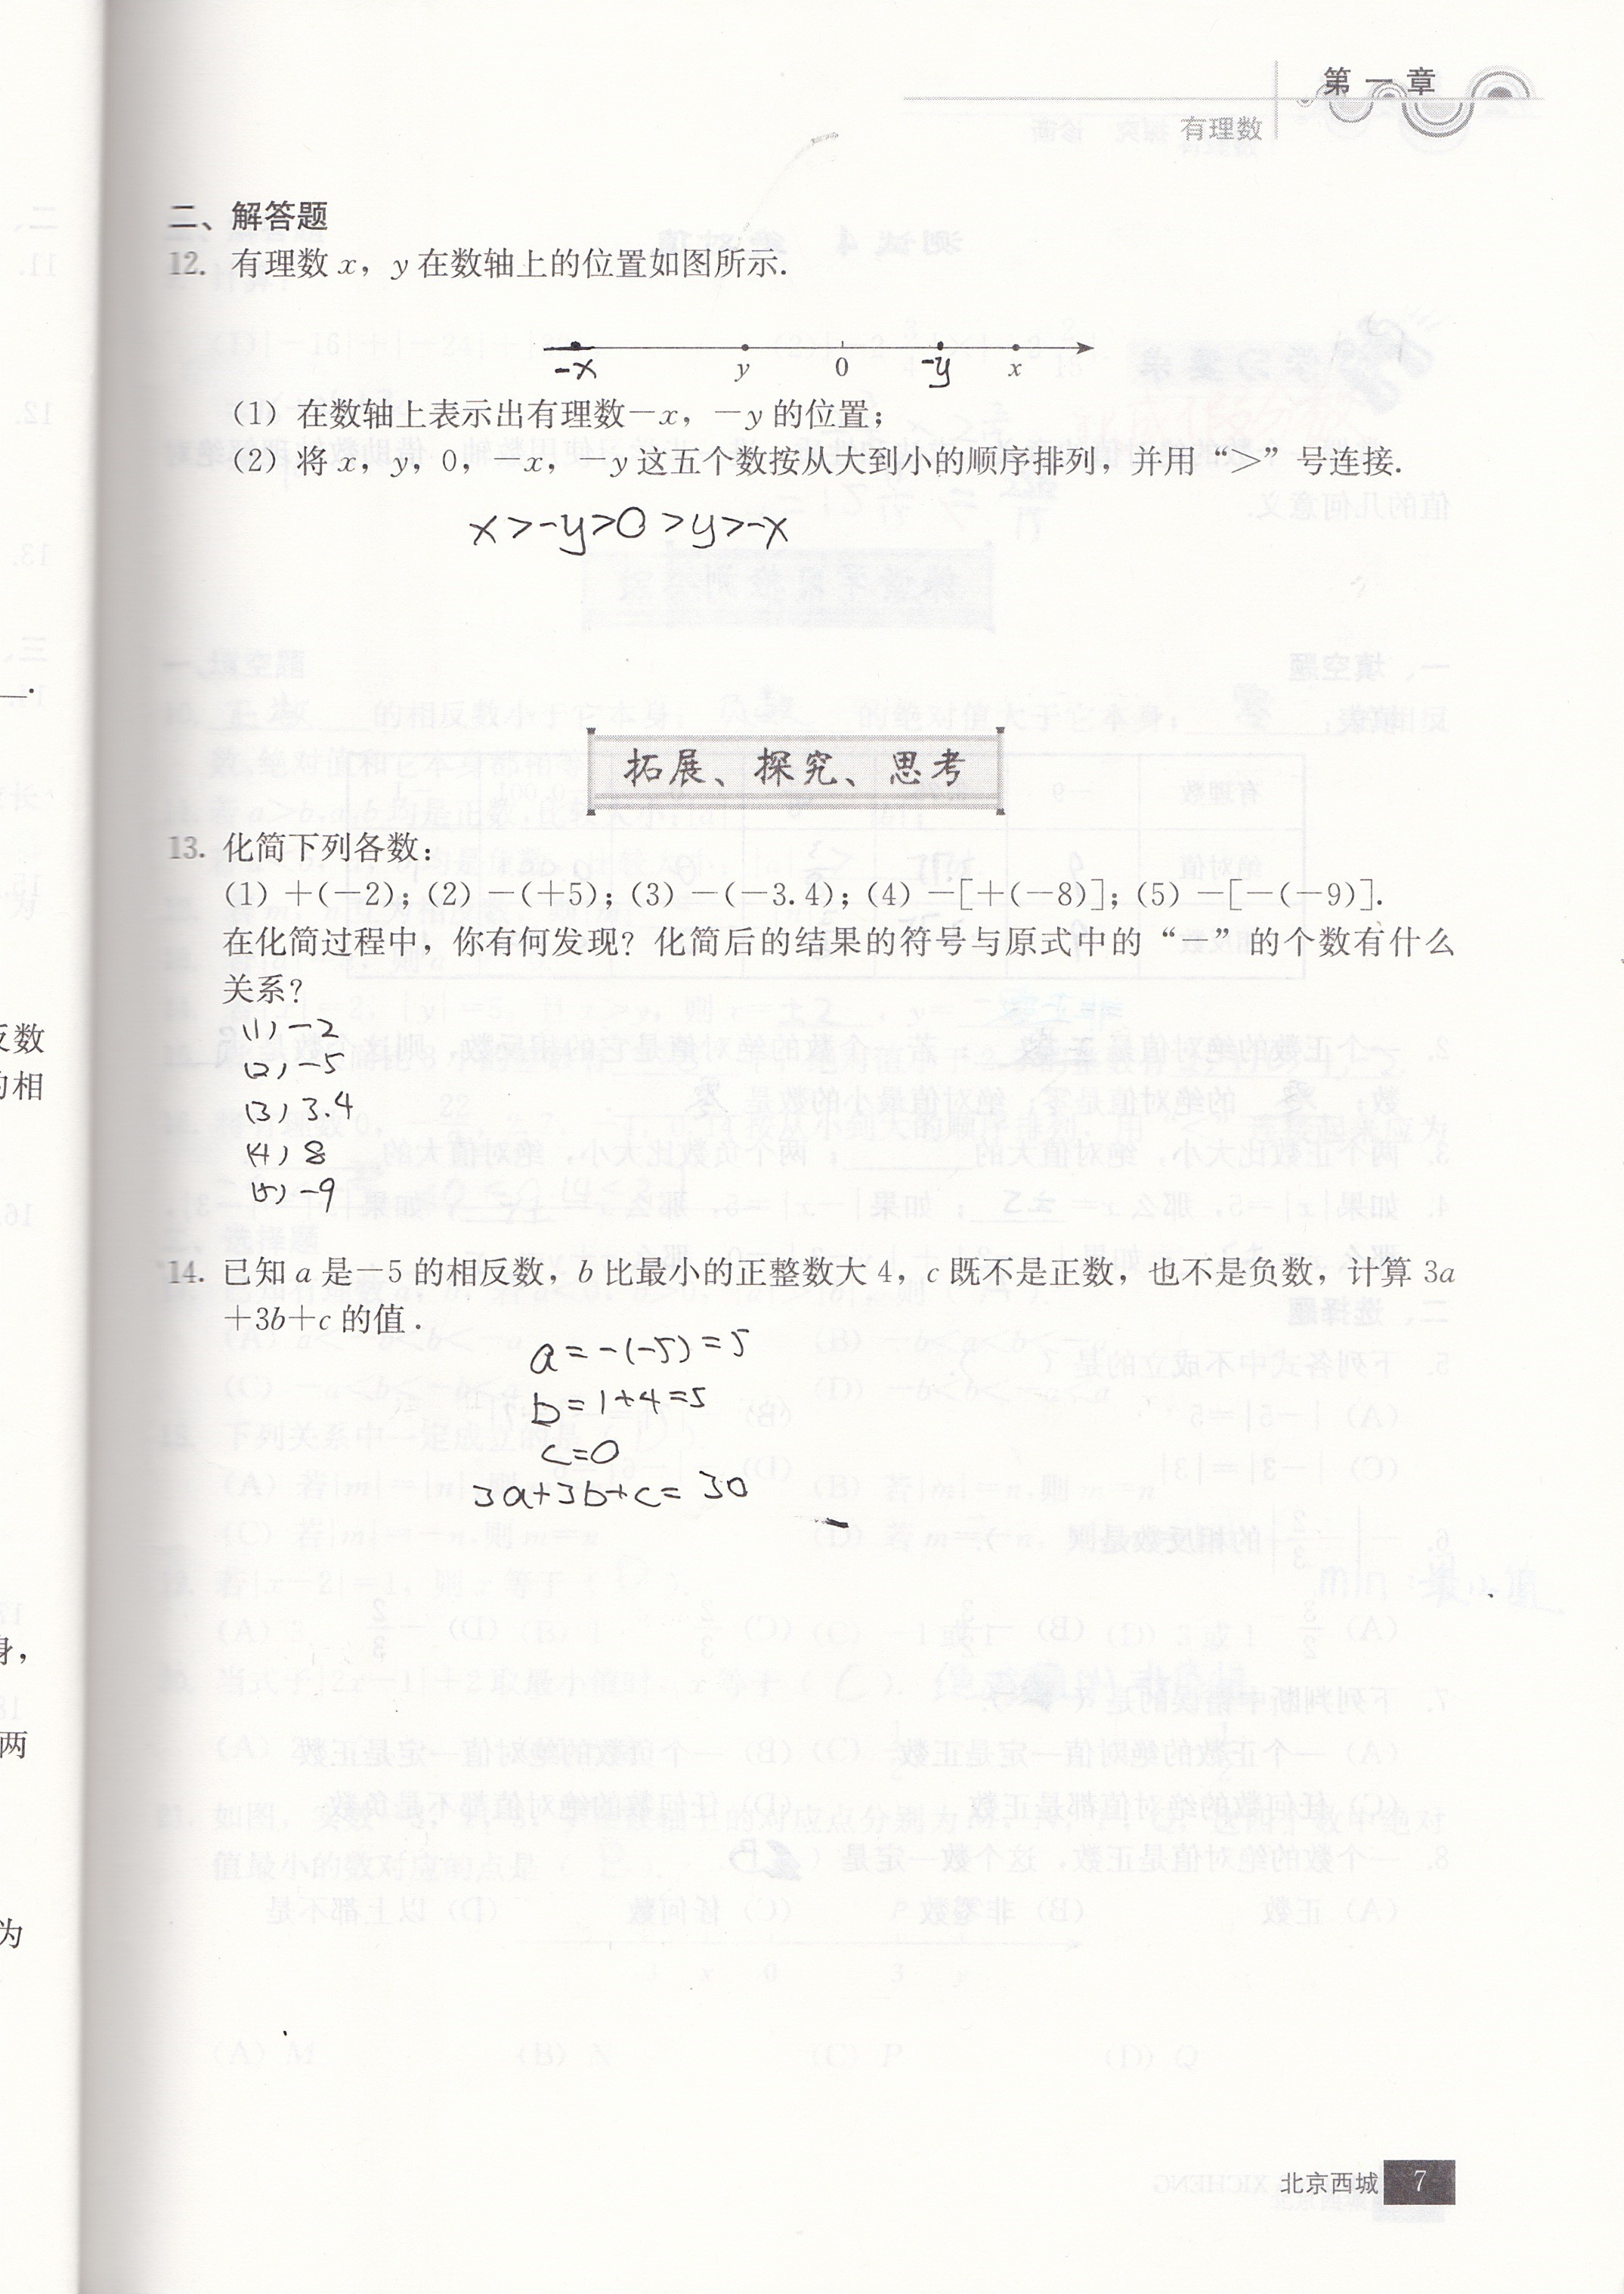 第一章
有理数
二、解答题
12. 有理数 x，y 在数轴上的位置如图所示.
-x y 0 -y x
（1）在数轴上表示出有理数－x，－y 的位置；
（2）将 x，y，0，－x，－y 这五个数按从大到小的顺序排列，并用“＞”号连接.
x>-y>0>y>-x
拓展、探究、思考
13. 化简下列各数：
（1）＋(－2)；（2）－(＋5)；（3）－(－3.4)；（4）－[＋(－8)]；（5）－[－(－9)].
在化简过程中，你有何发现？化简后的结果的符号与原式中的“－”的个数有什么
关系？
(1) -2
(2) -5
(3) 3.4
(4) 8
(5) -9
14. 已知 a 是－5 的相反数，b 比最小的正整数大 4，c 既不是正数，也不是负数，计算 3a
＋3b＋c 的值.
a=-(-5)=5
b=1+4=5
c=0
3a+3b+c=30
反数
的相
身，
两
为
北京西城 7